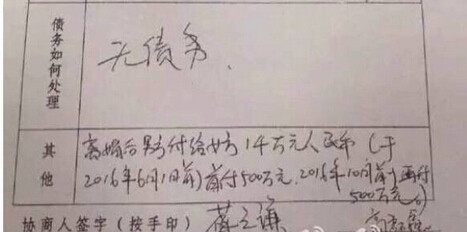 债务如何处理
无债务.
其他
离婚后男方付给女方1千万元人民币(于
2016年6月1日前)首付500万元.2016年10月前再付
500万元)
协商人签字(按手印)